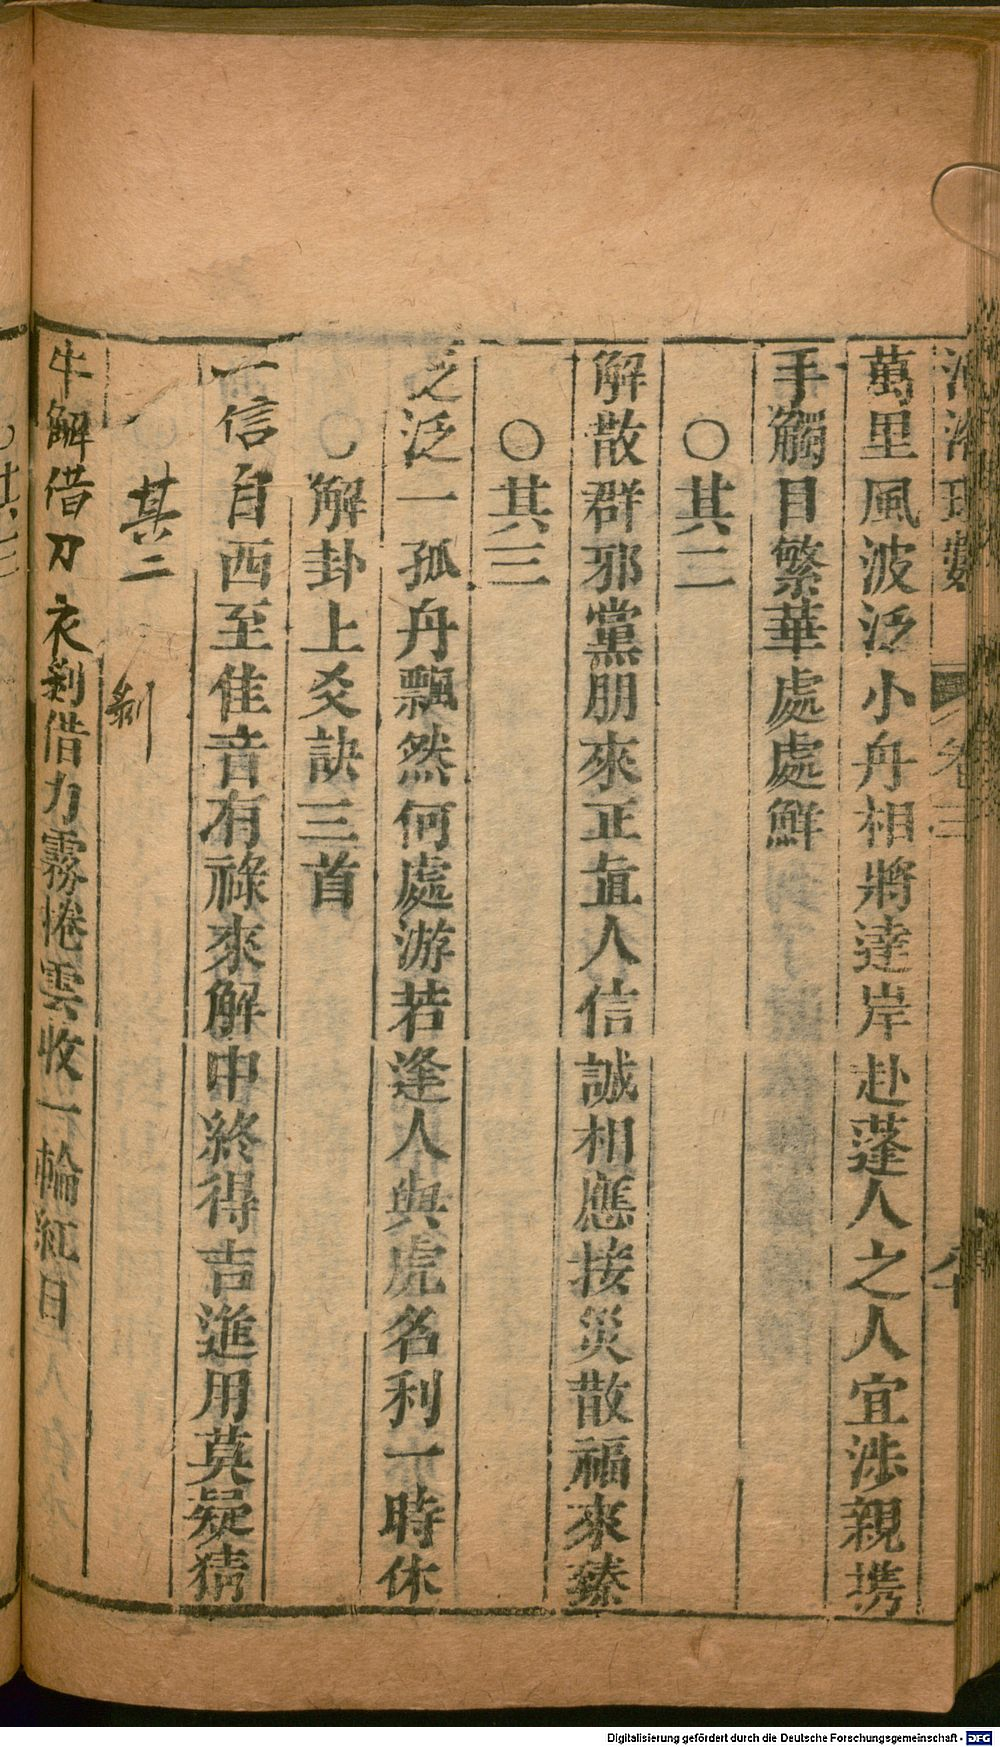 河洛理數 卷三 八十
萬里風波泛小舟相將達岸赴蓬人之人宜涉親攜
手觸目繁華處處鮮
○其二
解散群邪黨朋來正直人信誠相應接災散福來臻
○其三
泛泛一孤舟飄然何處游若逢人與虎名利一時休
○解卦上爻訣三首
一信自西至佳音有祿來解中終得吉進用莫疑猜
其二 剝
牛解借刀衣剝借力霧捲雲收一輪紅日
Digitalisierung gefördert durch die Deutsche Forschungsgemeinschaft - DFG